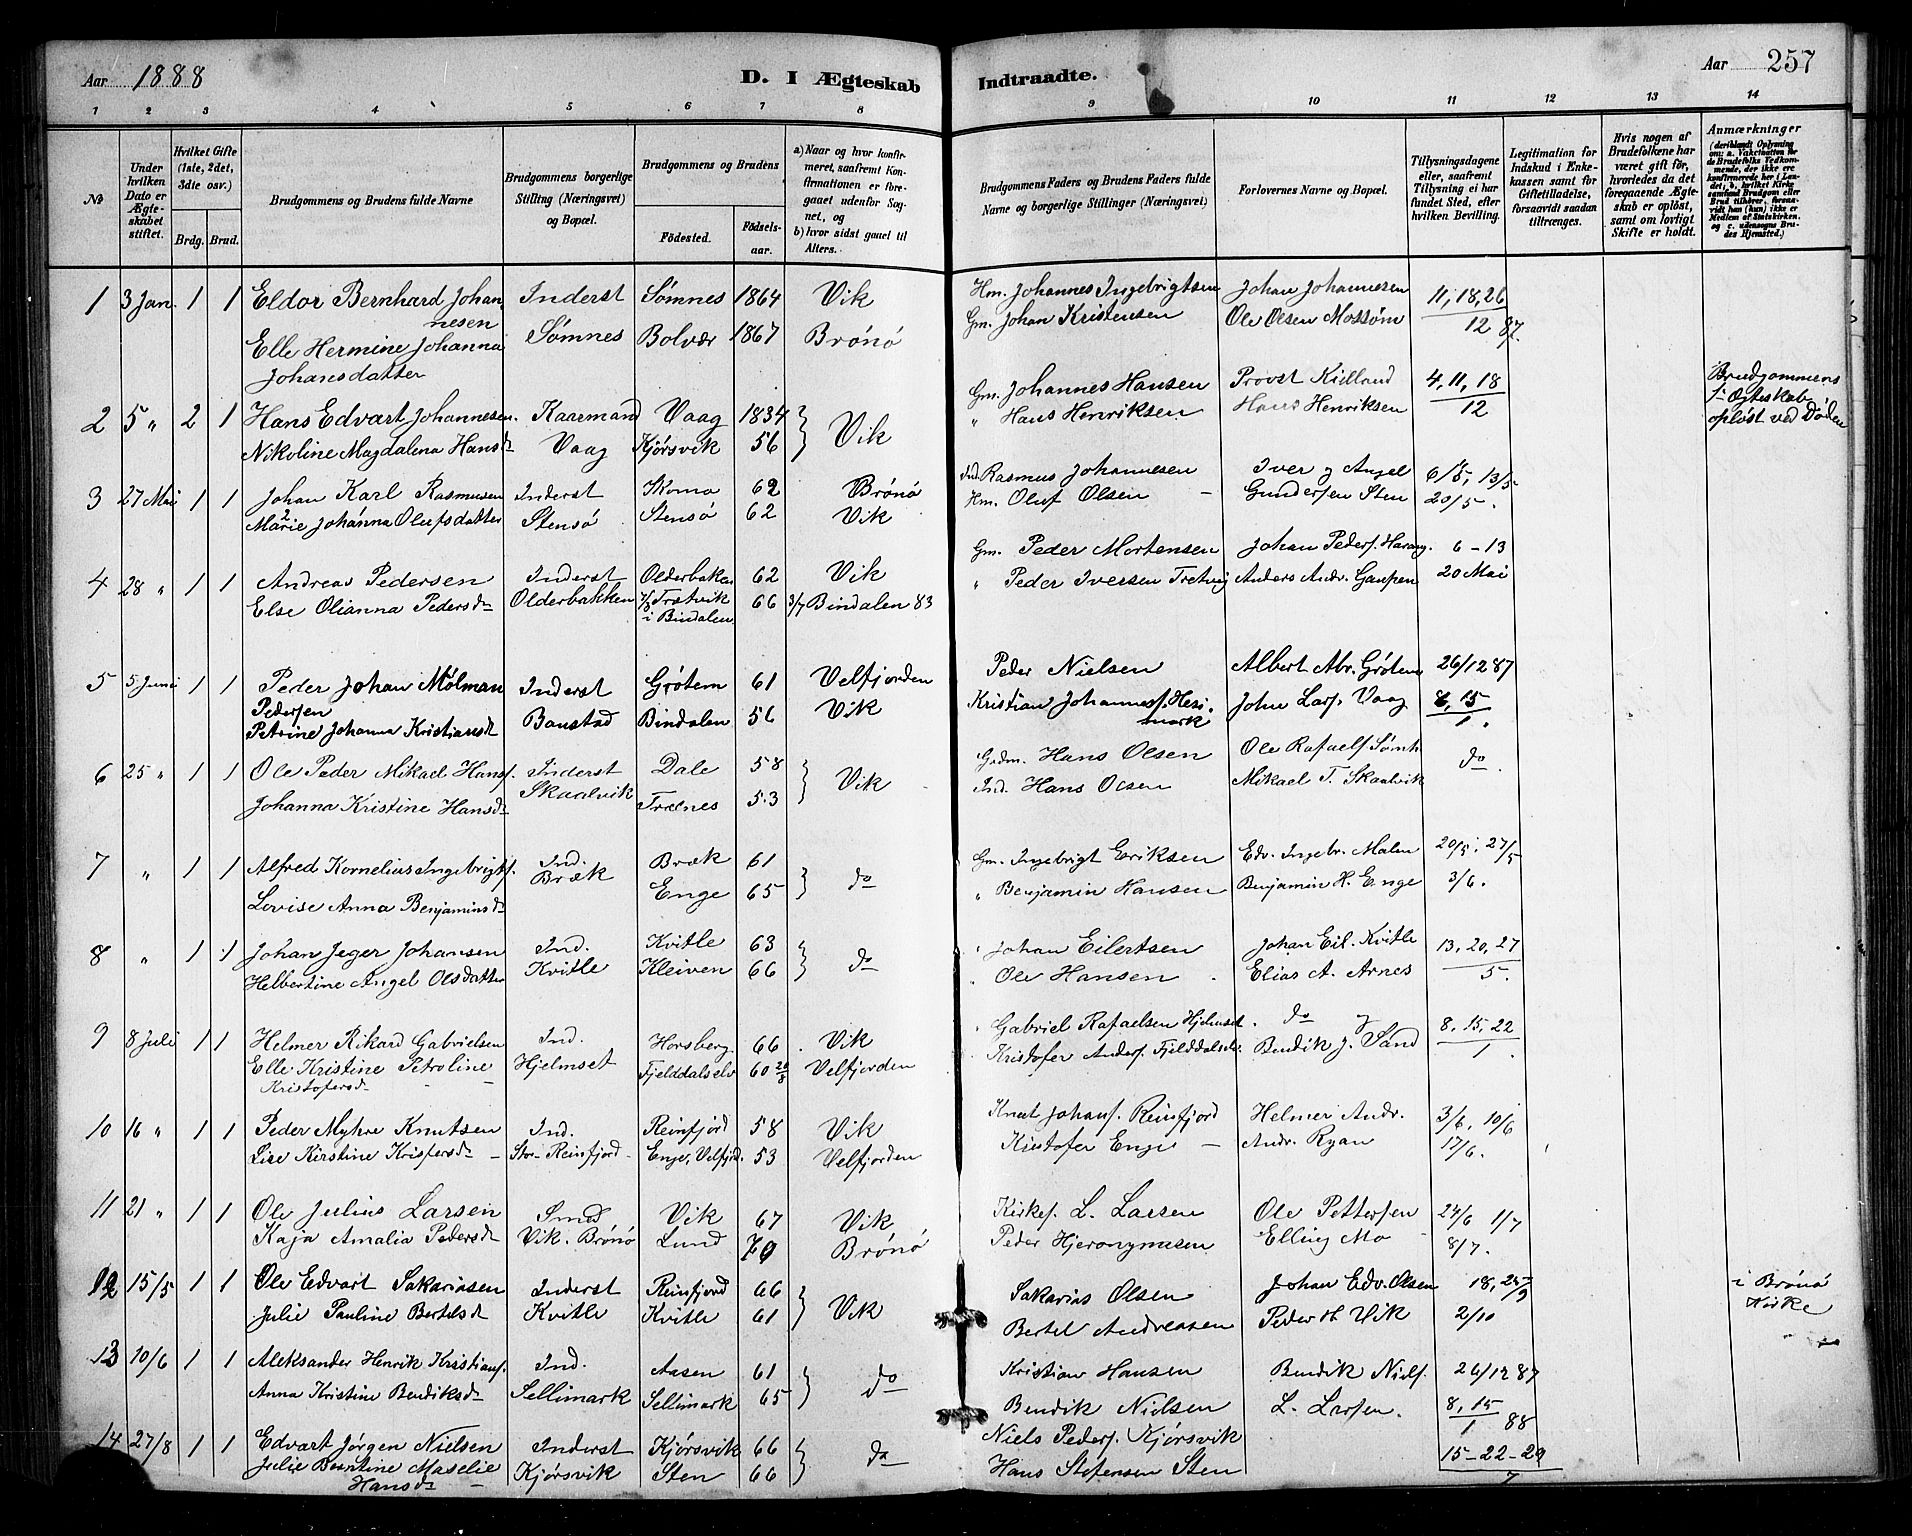 Aar 1888
D. I Ægteskab
Indtraadte.
Aar 257
1 2 3 4 5 6 7 8 9 10 11 12 13 14
No
Under hvilken Dato er Ægteskabet stiftet.
Hvilket Gifte (1ste, 2det, 3die osv.)
Brdg. Brud.
Brudgommens og Brudens fulde Navne
Brudgommens borgerlige Stilling (Næringsvei) og Bopæl.
Brudgommens og Brudens
Fødested.
Fødselsaar.
a) Naar og hvor konfirmeret, saafremt Konfirmationen er foregaaet udenfor Sognet, og
b) hvor sidst gaaet til Alters.
Brudgommens Faders og Brudens Faders fulde Navne og borgerlige Stillinger (Næringsvei)
Forlovernes Navne og Bopæl.
Tillysningsdagene eller, saafremt Tillysning ei har fundet Sted, efter hvilken Bevilling.
Legitimation for Indskud i Enkekassen samt for Giftetilladelse, forsaavidt saadan tiltrænges.
Hvis nogen af Brudefolkene har været gift før, hvorledes da det foregaaende Ægteskab er opløst, samt om lovligt Skifte er holdt.
Anmærkninger (deriblandt Oplysning om: a. Vakcination for de Brudefolks Vedkommende, der ikke ere konfirmerede her i Landet; b. hvilket Kirkesamfund Brudgom eller Brud tilhører, forsavidt han (hun) ikke er Medlem af Statskirken. og c. udensogns Brudes Hjemsted.)
1 3 Jan. 1 1 Eldor Bernhard Johan Inderst Sømnes 1864 Vik Hm. Johannes Ingebrigtsen Johan Johannesen 11, 18, 26
nesen Sømnes Bolvær 1867 Brønø Gm. Johan Kristensen Ole Olsen Mossøm 12 87.
Elle Hermine Johanna
Johansdatter
2 5 " 2 1 Hans Edvart Johannesen. Kaarmand Vaag 1834 } Vik Gm. Johannes Hansen Provst Kielland 4, 11, 18 Brudgommens
Nikoline Magdalena Hansd Vaag Kjørsvik 56 " Hans Henriksen Hans Henriksen 12 1ste Ægteskab
opløst ved Døden
3 27 Mai 1 1 Johan Karl Rasmusen Inderst Skomo 62 Brønø Ind. Rasmus Johannesen Iver og Angel 6/5, 13/5
Marie Johanna Olufsdatter Stensø Stensø 62 Vik Hm. Oluf Olsen Gundersen Sten 20/5.
4 28 " 1 1 Andreas Pedersen Inderst Olderbakken 62 Vik Gm. Peder Mortensen Johan Peders. Harang. 6 - 13
Else Olianna Pedersdr Olderbakken 7/8 Trætvik 66 3/7 Bindalen 83 " Peder Iversen Tretvig Anders Andr. Gaupen 20 Mai
i Bindalen
5 5 Juni 1 1 Peder Johan Mølman Inderst Grøtem 61 Velfjorden Peder Nielsen Albert Abr. Grøtem 26/12 87
Pedersen
Petrine Johanna Kristiansd Baustad Bindalen 56 Vik Kristian Johannes. Hesimark John Lars. Vaag 8, 15
1.
6 25 " 1 1 Ole Peder Mikael Hans. Inderst Dale 58 } Vik Grdm. Hans Olsen Ole Rafaels. Sømh do
Johanna Kristine Hansd Skaalvik Trælnes 53 Ind. Hans Olsen Mikael T. Skaalvik
7 " 1 1 Alfred Kornelius Ingebrigts. Ind. Bræk 61 } do Gm. Ingebrigt Eriksen Edv. Ingebr. Malen 20/5, 27/5
Lovise Anna Benjaminsd Bræk Enge 65 " Benjamin Hansen Benjamin H. Enge 3/6.
8 " 1 1 Johan Jeger Johansen Ind. Kvitle 63 } do " Johan Eilertsen Johan Eil. Kvitle 13, 20, 27
Helbertine Angel Olsdatter Kvitle Kleiven 66 " Ole Hansen Elias A. Arnes 5.
9 8 Juli 1 1 Helmer Rikard Gabrielsen Ind. Horsberg 66 Vik " Gabriel Rafaelsen Hjelmset do og 8, 15, 22
Elle Kristine Petroline Hjelmset Fjelddalselv 60 20/8 Velfjorden Kristofer Anders. Fjelddalselv Bendik J. Sand 1
Kristofersd
10 16 " 1 1 Peder Myhre Knutsen Ind. Reinfjord 58 Vik Knut Johans. Reinfjord Helmer Andr. 3/6, 10/6
Lise Kirstine Kristfersd Stor-Reinfjord Enge, Velfjrd. 53 Velfjorden Kristofer Enge Andr. Ryan 17/6.
11 21 " 1 1 Ole Julius Larsen Smed Vik 67 Vik Kirkes. L. Larsen Ole Pettersen 24/6 1/7
Kaja Amalia Pedersd Vik. Brønø Lund 70 Brønø Peder Hjeronymasen Elling Mo 8/7.
12 15/5 1 1 Ole Edvart Sakariasen Inderst Reinfjord 66 } Vik Sakarias Olsen Johan Edv. Olsen 18, 25/9 i Brønø
Julie Pauline Bertelsd Kvitle Kvitle 61 Bertel Andreasen Peder H Vik 2/10 Kirke
13 10/6 1 1 Aleksander Henrik Kristians. Ind. Aasen 61 } do Kristian Hansen Bendik Niels. 26/12 87
Anna Kristine Bendiksd Sellimark Sellimark 65 Bendik Nielsen L. Larsen. 8, 15
1 88
14 27/8 1 1 Edvart Jørgen Nielsen Inderst Kjørsvik 66 } do Niels Peders. Kjørsvik 15-22-29
Julie Berntine Maselie Kjørsvik Sten 66 Hans Stefensen Sten 7
Hansd